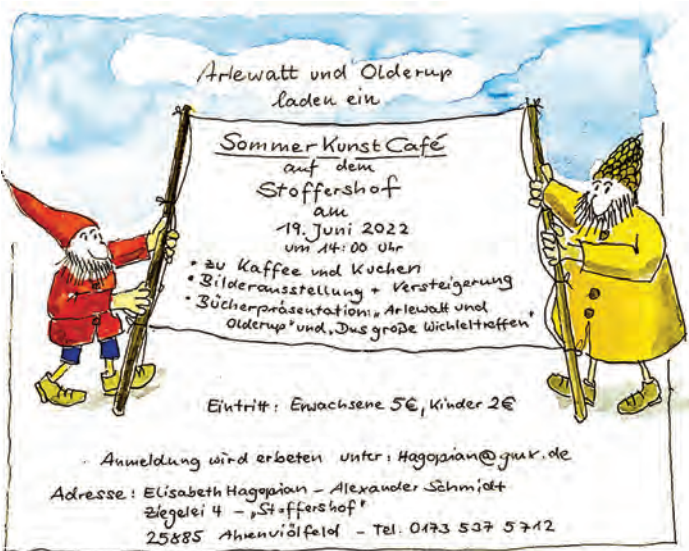 Arlewatt und Olderup
laden ein
SommerKunstCafé
auf dem
Stoffershof
am
19. Juni 2022
um 14:00 Uhr
• zu Kaffee und Kuchen
• Bilderausstellung + Versteigerung
• Bücherpräsentation: „Arlewatt und
Olderup" und „Das große Wichteltreffen"
Eintritt: Erwachsene 5€, Kinder 2€
Anmeldung wird erbeten unter: Hagopian@gmx.de
Adresse: Elisabeth Hagopian – Alexander Schmidt
Ziegelei 4 – „Stoffershof"
25885 Ahrenviölfeld – Tel: 0173 537 5712